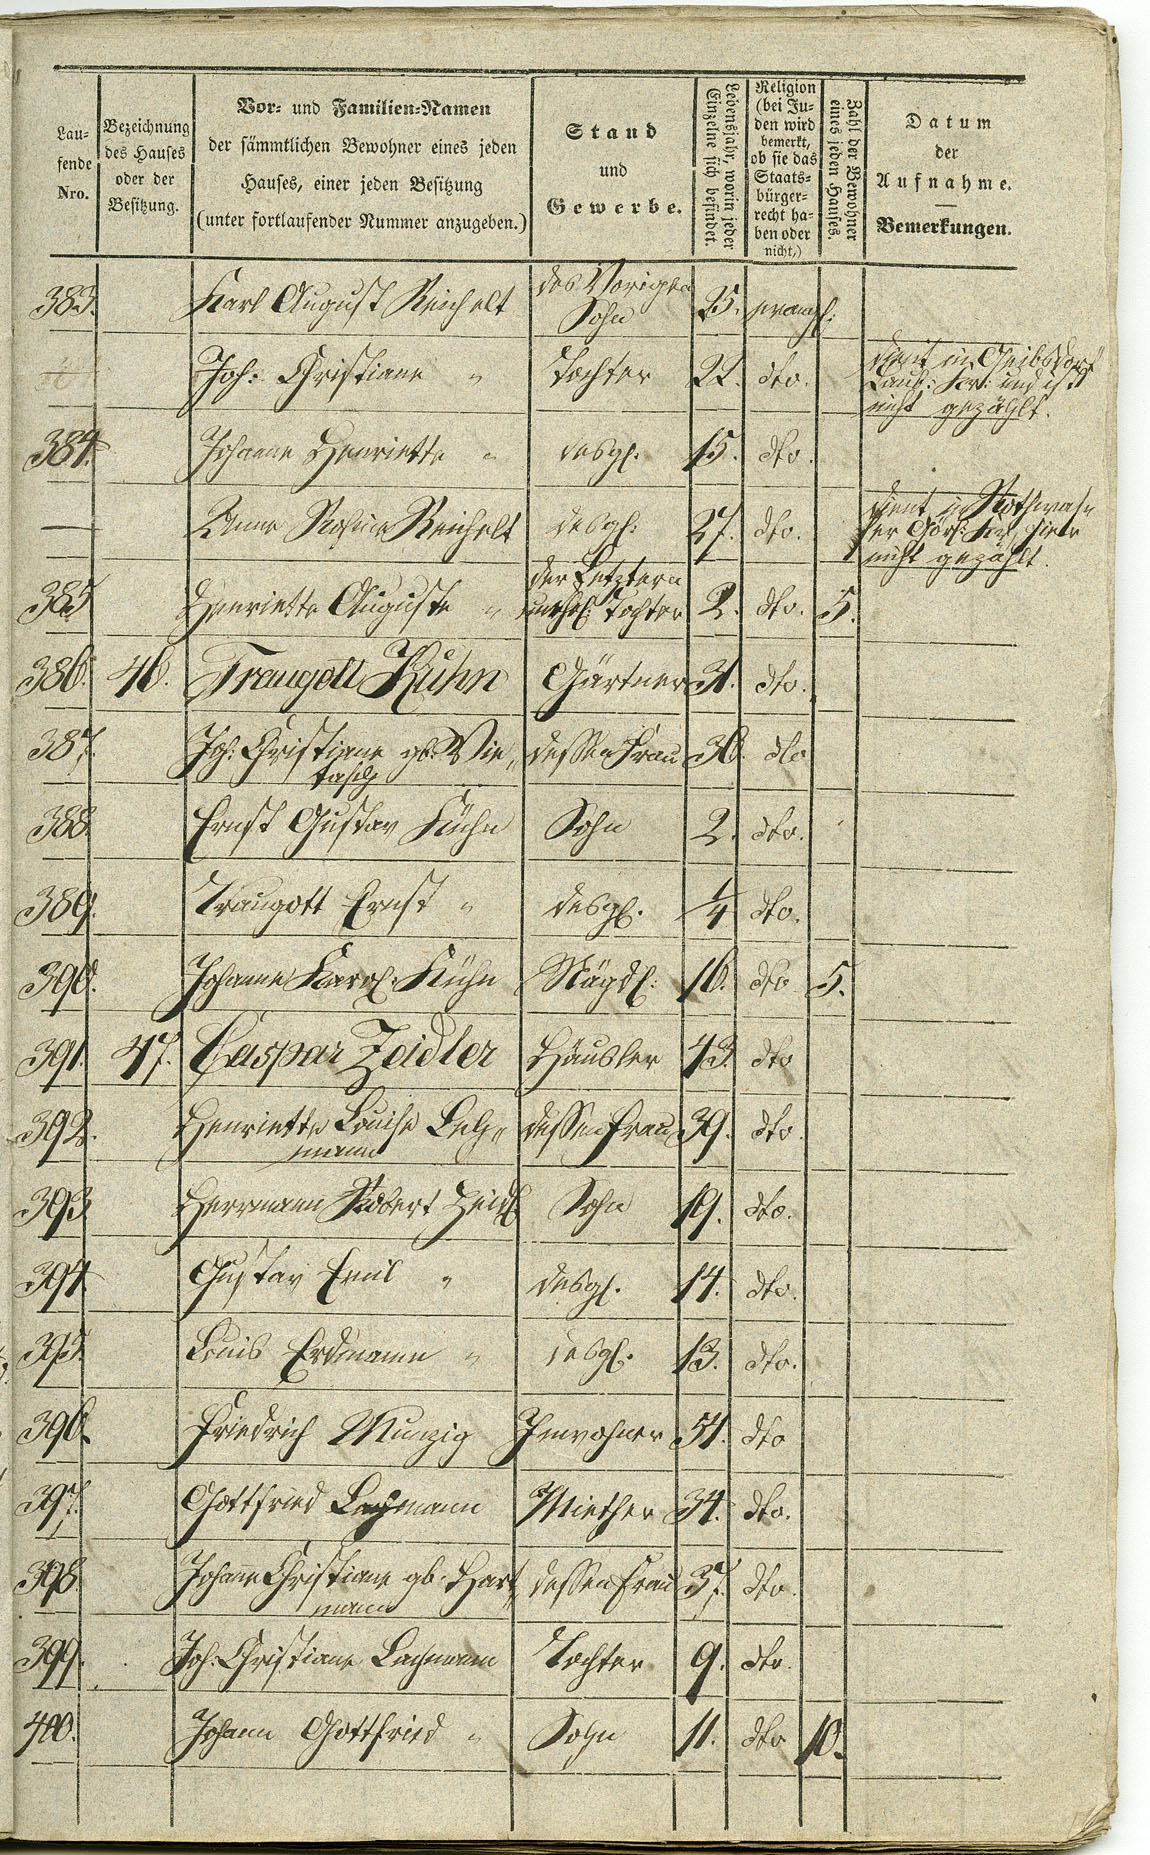 Lau-
fende
Nro.
Bezeichnung
des Hauses
oder der
Besitzung.
Vor- und Familien-Namen
der sämmtlichen Bewohner eines jeden
Hauses, einer jeden Besitzung
(unter fortlaufender Nummer anzugeben.)
Stand
und
Gewerbe.
Lebensjahr, worin jeder
Einzelne sich befindet.
Religion
(bei Ju-
den wird
bemerkt,
ob sie das
Staats-
bürger-
recht ha-
ben oder
nicht,)
Zahl der Bewohner
eines jeden Hauses.
Datum
der
Aufnahme.
Bemerkungen.
383. Karl August Reichelt des Vorigen Sohn 25. evangl:
Joh: Christiane " Tochter 22. dto. dient in Geibsdorf
Laub: Kr: und ist
nicht gezählt.
384. Johanne Henriette " desgl. 15. dto.
— Anne Rosine Reichelt desgl: 27. dto. dient in Rothwas-
ser Görl: Kr. hier
nicht gezählt.
385 Henriette Auguste " der Letztern
unehel: Tochter 2. dto. 5.
386. 46. Traugott Kühn Gärtner 31. dto.
387. Joh: Christiane gb. Vie- dessen Frau 36. dto
tasch
388. Ernst Gustav Kühn Sohn 2. dto.
389. Traugott Ernst " desgl. 1/4 dto.
390. Johanne Karol. Kühn Mägdl: 16. dto 5.
391. 47. Caspar Zeidler Häusler 43. dto
392. Henriette Louise dessen Frau 39. dto.
mann
393 Herrmann Robert Zeidl. Sohn 19. dto.
394. Gustav Emil " desgl. 14. dto.
395. Louis Erdmann " desgl. 13. dto.
396. Friedrich Munzig Inwohner 54. dto
397. Gottfried Lachmann Miether 34. dto.
398 Johanne Christiane gb. Hart- dessen Frau 37. dto.
mann
399. Joh: Christiane Lachmann Tochter 9. dto.
400. Johann Gottfried " Sohn 11. dto 10.